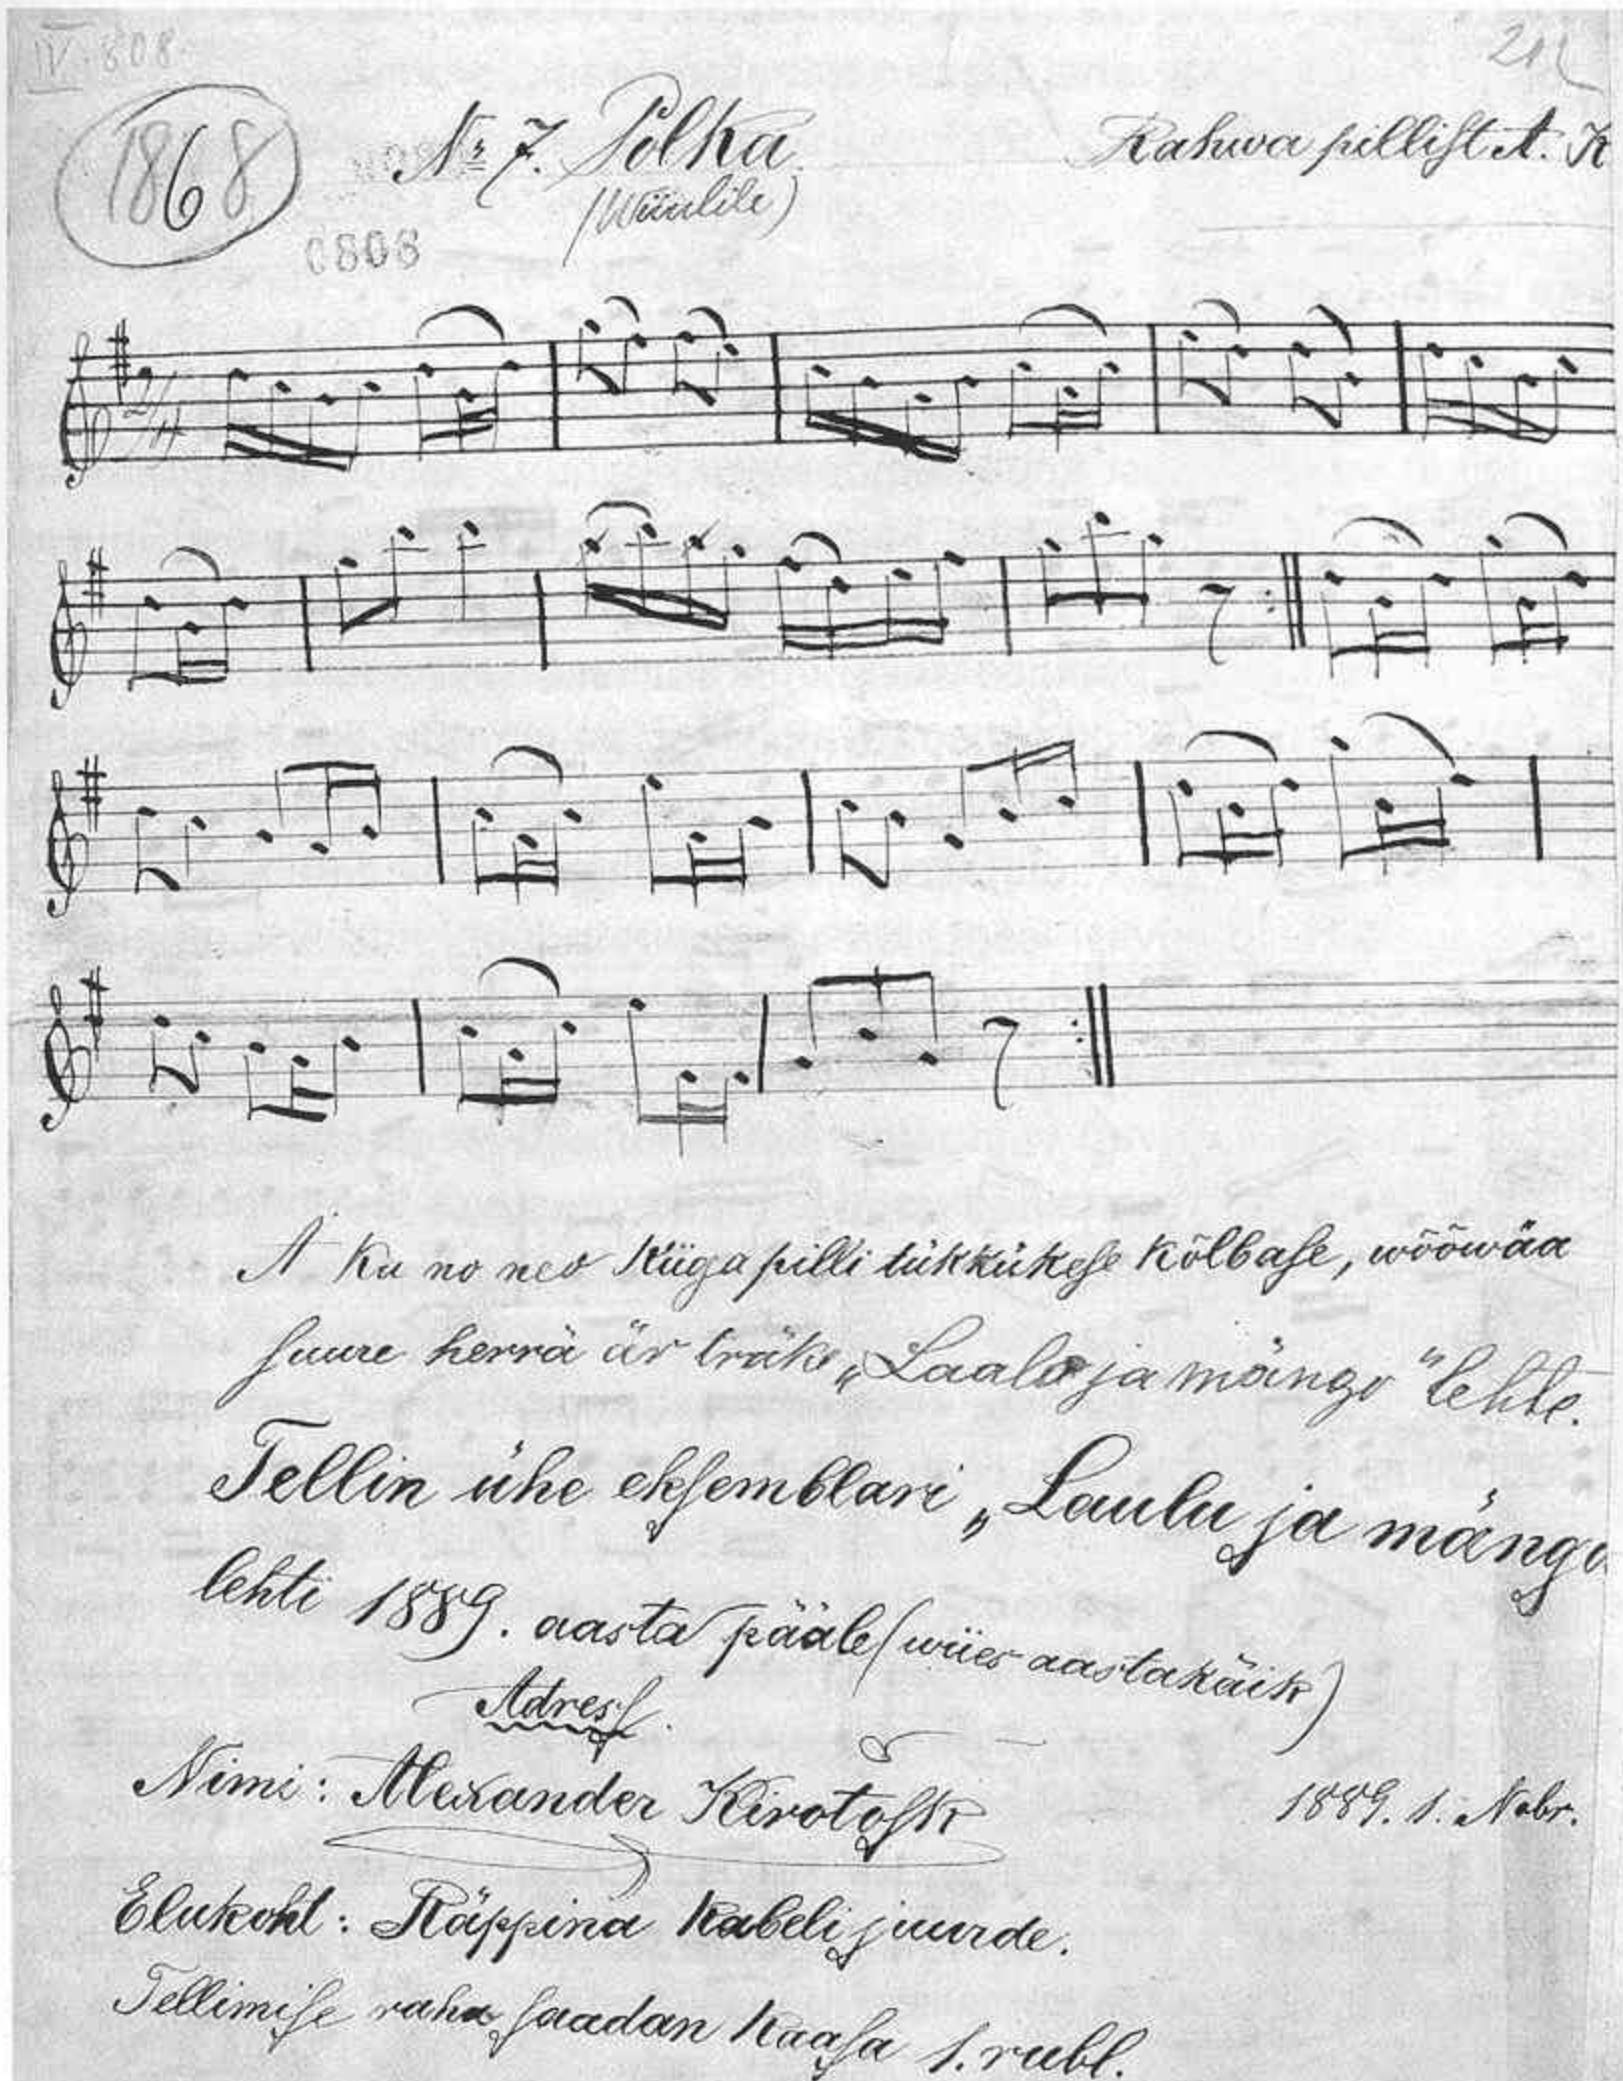 IV. 808
212
1868
№ 7. Polka
Rahwa pillist A. K
(Wiiulile)
0808
2/4
A ku no neo Kiigapilli tükkükese kõlbase, wõõwäa
suure herrä är träke „Laalo ja mängo" lehte.
Tellin ühe eksemblari „Laulu ja mängu
lehti 1889. aasta pääle (wiies aastakäik)
Adress.
Nimi: Alexander Kirotosk
1889. 1. Nobr.
Elukoht: Räppina Kabeli juurde.
Tellimise raha saadan kaasa 1. rubl.